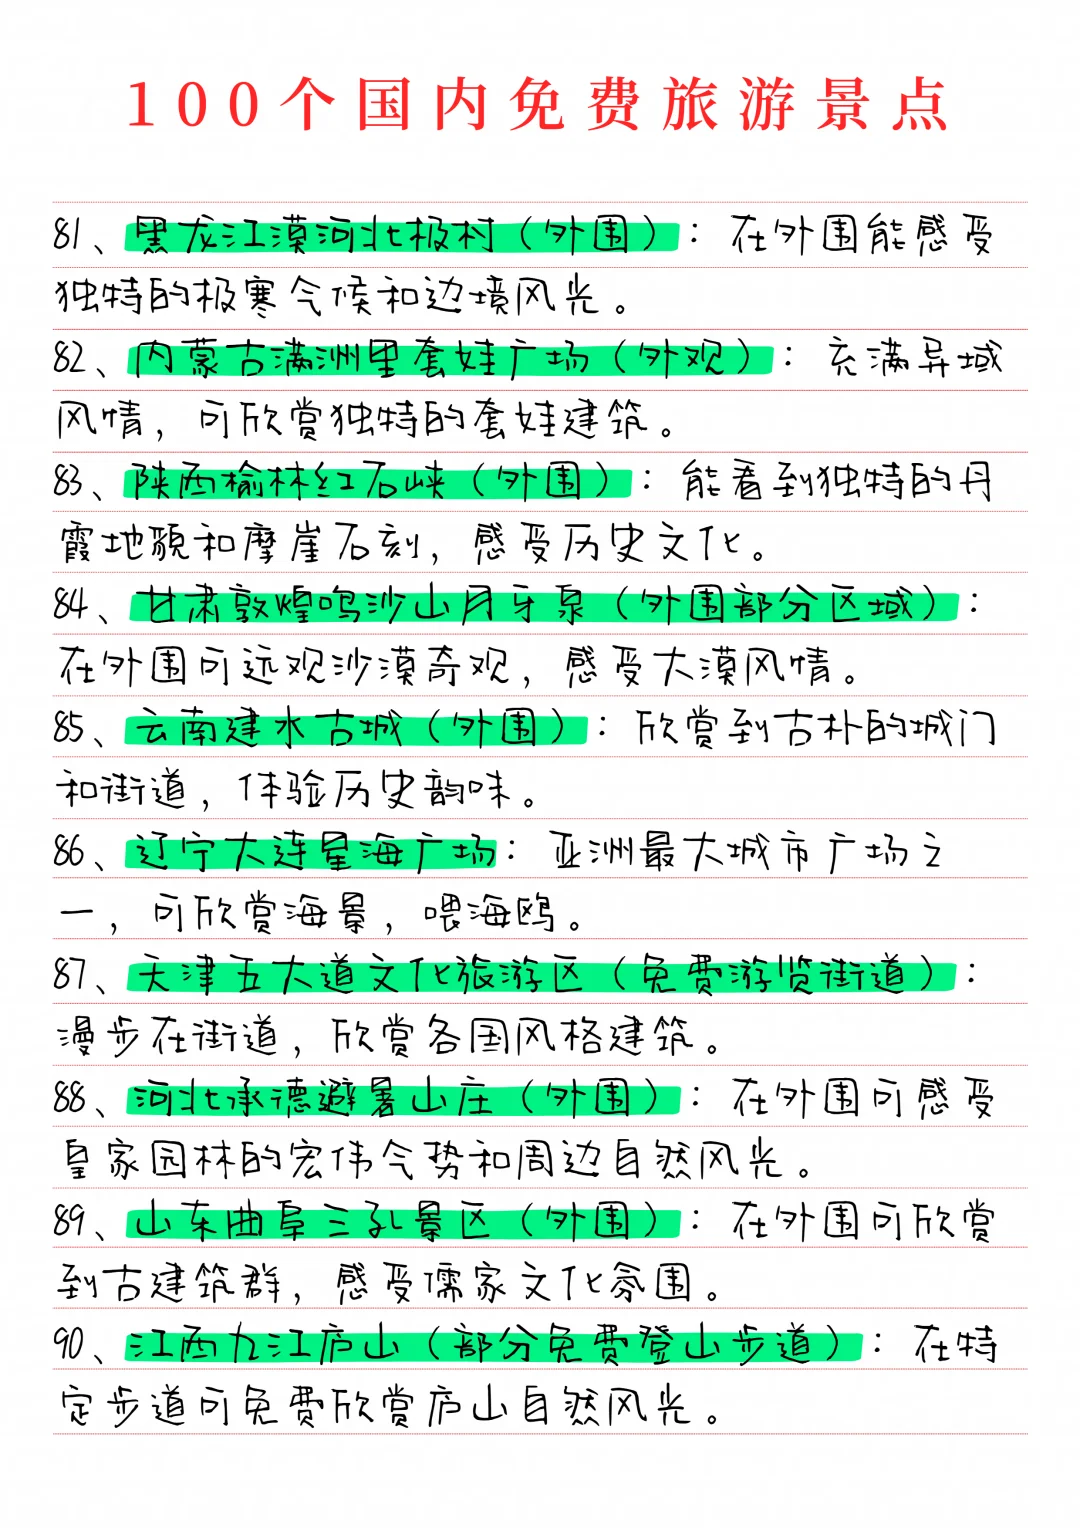 100个国内免费旅游景点
81、黑龙江漠河北极村（外围）：在外围能感受
独特的极寒气候和边境风光。
82、内蒙古满洲里套娃广场（外观）：充满异域
风情，可欣赏独特的套娃建筑。
83、陕西榆林红石峡（外围）：能看到独特的丹
霞地貌和摩崖石刻，感受历史文化。
84、甘肃敦煌鸣沙山月牙泉（外围部分区域）：
在外围可远观沙漠奇观，感受大漠风情。
85、云南建水古城（外围）：欣赏到古朴的城门
和街道，体验历史韵味。
86、辽宁大连星海广场：亚洲最大城市广场之
一，可欣赏海景，喂海鸥。
87、天津五大道文化旅游区（免费游览街道）：
漫步在街道，欣赏各国风格建筑。
88、河北承德避暑山庄（外围）：在外围可感受
皇家园林的宏伟气势和周边自然风光。
89、山东曲阜三孔景区（外围）：在外围可欣赏
到古建筑群，感受儒家文化氛围。
90、江西九江庐山（部分免费登山步道）：在特
定步道可免费欣赏庐山自然风光。